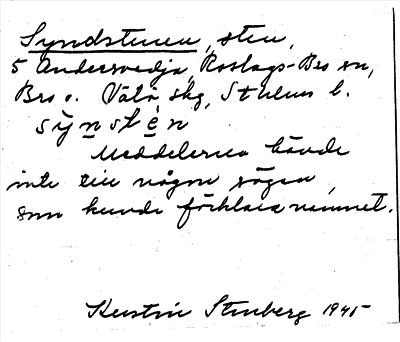 Syndstenen, sten,
5 Andersvedja, Roslags-Bro sn,
Bro o. Vätö skg, Sthlms l.
sy̆nstēn
Meddelarna hävde
inte till någon sägen,
som kunde förklara namnet.
Kerstin Stenberg 1945